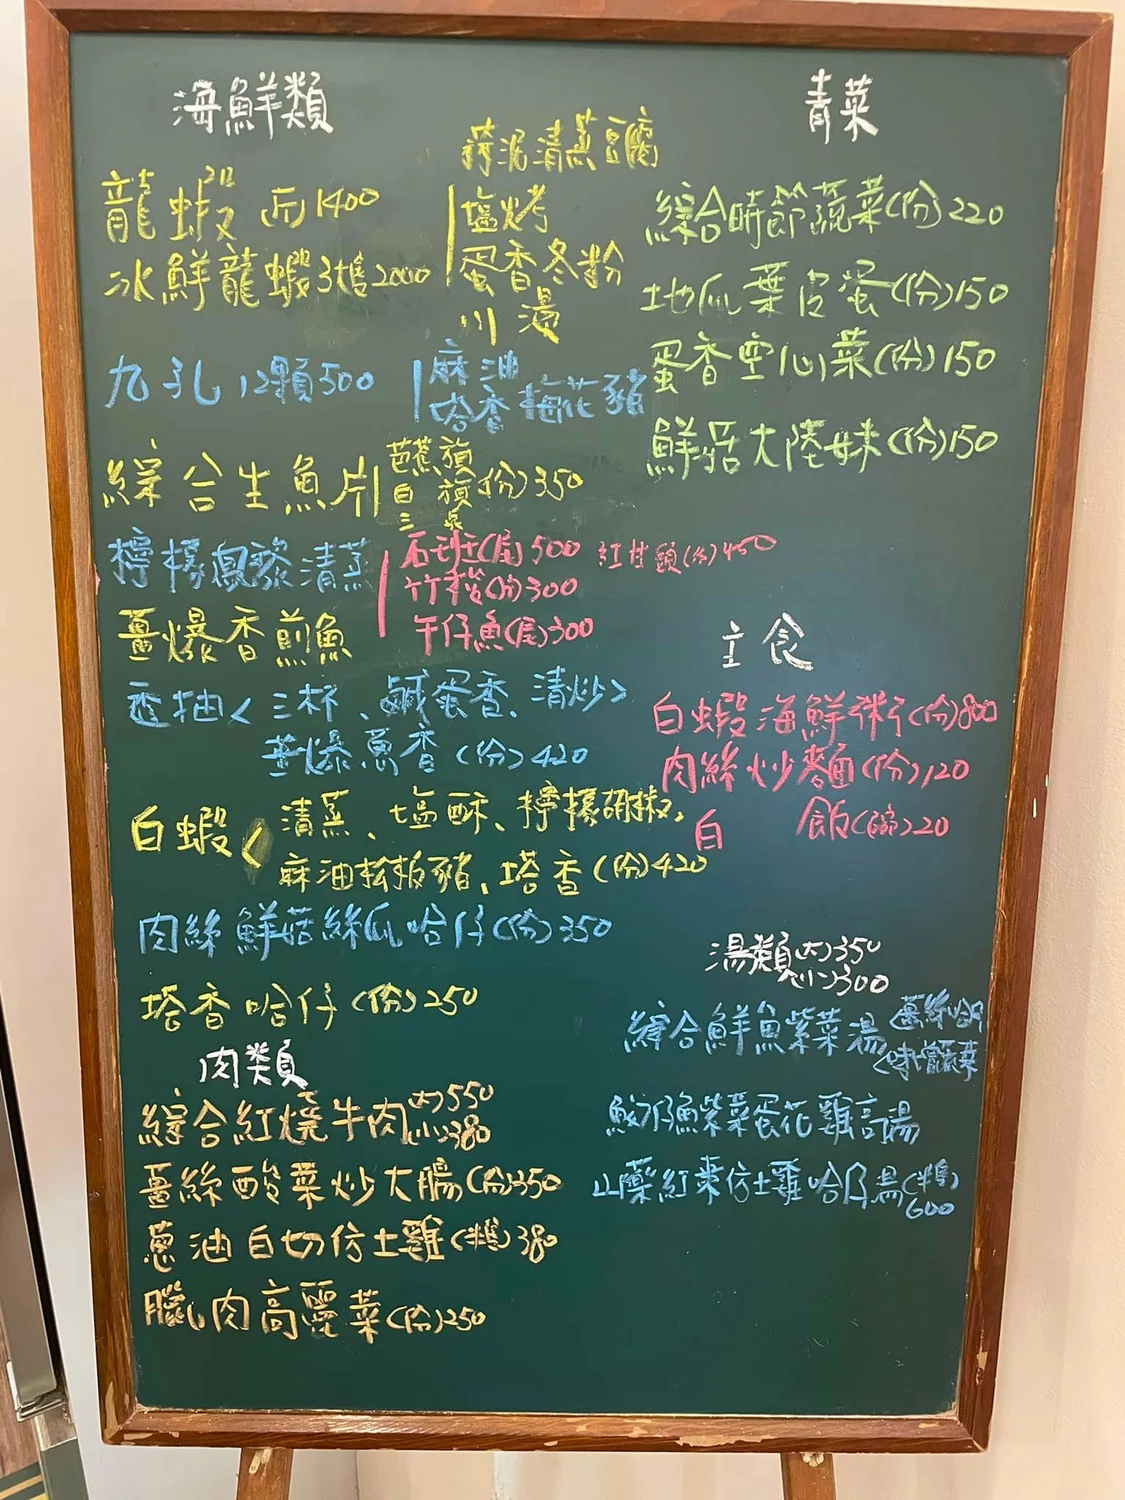 海鮮類
龍蝦 2隻 1400
冰鮮龍蝦3隻2000
蒜泥清蒸豆腐
塩烤
蛋香冬粉
川湯
九孔12顆500
麻油
哈香 梅花豬
綜合生魚片
芭蕉旗
白旗
三
(份)350
檸檬鳳黎清蒸
薑爆香煎魚
石班(尾)500
紅甘頭(份)450
竹梭(份)300
午仔魚(尾)300
透抽<三杯、鹹蛋香、清炒>
薑爆蔥香(份)420
白蝦<清蒸、塩酥、檸檬胡椒,
麻油松板豬、塔香(份)420
肉絲鮮菇絲瓜哈仔(份)350
塔香哈仔(份)250
肉類
綜合紅燒牛肉 大)550
小)380
薑絲酸菜炒大腸(份)350
蔥油白切仿土雞(半隻)380
臘肉高麗菜(份)250
青菜
綜合時節蔬菜(份)220
地瓜葉皮蛋(份)150
蛋香空心菜(份)150
鮮菇大陸妹(份)150
主食
白蝦海鮮粥(份)800
肉絲炒麵(份)120
白飯(碗)20
湯類 大)350
小)300
綜合鮮魚紫菜湯
薑絲
味噌
魩仔魚紫菜蛋花雞湯
山藥紅棗仿土雞哈仔湯(半隻)
600